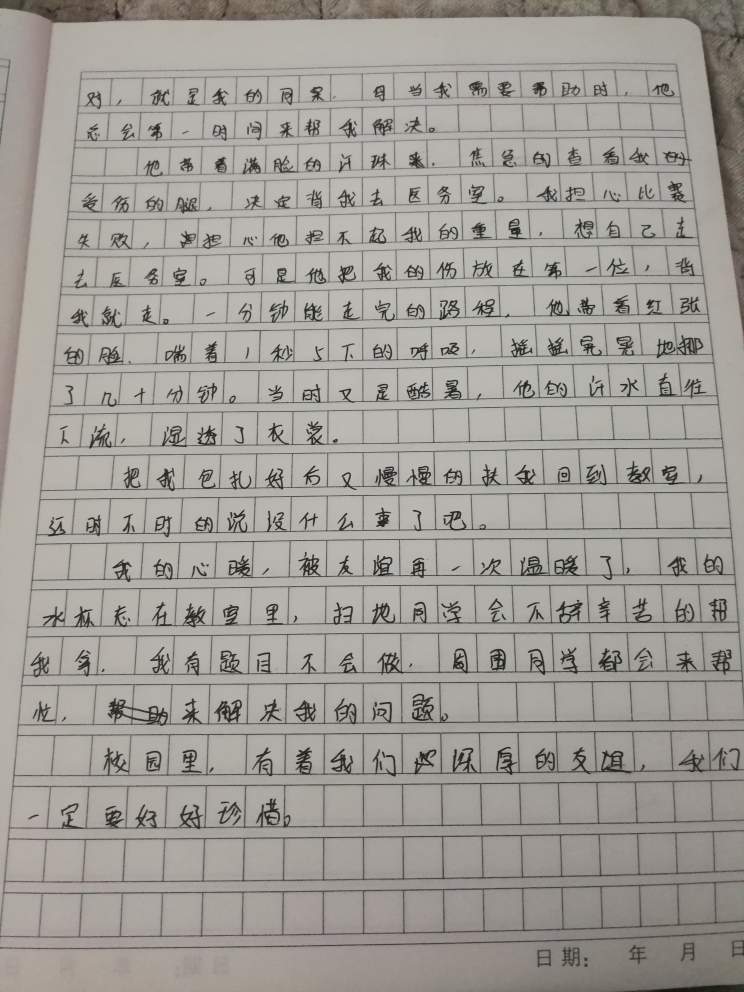 对，就是我的同桌．每当我需要帮助时，他
总会第一时间来帮我解决。
他带着满脸的汗珠．焦急的查看我的
受伤的腿，决定背我去医务室。我担心比赛
失败，担心他担不起我的重量，想自己走
去医务室。可是他把我的伤放在第一位，背
我就走。一分钟能走完的路程，他带着红张
的脸．喘着1秒5下的呼吸，摇摇晃晃地挪
了几十分钟。当时又是酷暑，他的汗水直往
下流，湿透了衣裳。
把我包扎好后又慢慢的扶我回到教室，
还时不时的说没什么事了吧。
我的心暖，被友谊再一次温暖了，我的
水杯忘在教室里，扫地同学会不辞辛苦的帮
我拿．我有题目不会做．周围同学都会来帮
忙，来解决我的问题。
校园里，有着我们深厚的友谊，我们
一定要好好珍惜。
日期： 年 月 日